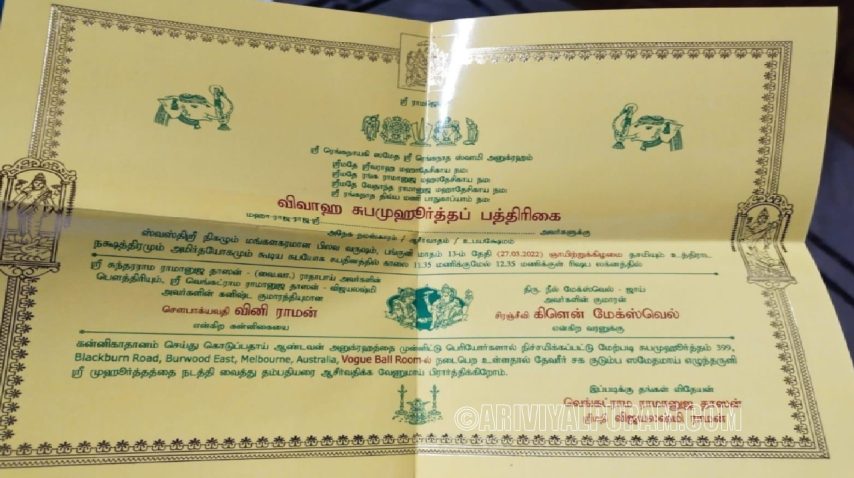 ஸ்ரீ ராமஜெயம்
ஸ்ரீ ரெங்கநாயகி ஸமேத ஸ்ரீ ரெங்கநாத ஸ்வாமி அனுக்ரஹம்
ஸ்ரீமதே ஸ்ரீவராஹ மஹாதேசிகாய நம:
ஸ்ரீமதே ரங்க ராமானுஜ மஹாதேசிகாய நம:
ஸ்ரீமதே வேதாந்த ராமானுஜ மஹாதேசிகாய நம:
ஸ்ரீ ரங்கநாத திவ்ய மணி பாதுகாப்யாம் நம:
விவாஹ சுபமுஹூர்த்தப் பத்திரிகை
மஹா-ராஜ-ராஜ-ஸ்ரீ அவர்களுக்கு
அநேக நமஸ்காரம் / ஆசீர்வாதம் / உபயக்ஷேமம்
ஸ்வஸ்திஸ்ரீ நிகழும் மங்களகரமான பிலவ வருஷம், பங்குனி மாதம் 13-ம் தேதி (27.03.2022) ஞாயிற்றுக்கிழமை தசமியும் உத்திராட
நக்ஷத்திரமும் அமிர்தயோகமும் கூடிய சுபயோக சுபதினத்தில் காலை 11.35 மணிக்குமேல் 12.35 மணிக்குள் ரிஷப லக்னத்தில்
ஸ்ரீ சுந்தரராம ராமானுஜ தாஸன் - (வை.வா.) ராதாபாய் அவர்களின்
பௌத்திரியும், ஸ்ரீ வெங்கட்ராம ராமானுஜ தாஸன் - விஜயலக்ஷ்மி
அவர்களின் கனிஷ்ட குமாரத்தியுமான
சௌபாக்யவதி வினி ராமன்
என்கிற கன்னிகையை
திரு. நீல் மேக்ஸ்வெல் - ஜாய்
அவர்களின் குமாரன்
சிரஞ்சீவி கிளென் மேக்ஸ்வெல்
என்கிற வரனுக்கு
கன்னிகாதானம் செய்து கொடுப்பதாய் ஆண்டவன் அனுக்ரஹத்தை முன்னிட்டு பெரியோர்களால் நிச்சயிக்கப்பட்டு மேற்படி சுபமுஹூர்த்தம் 399,
Blackburn Road, Burwood East, Melbourne, Australia, Vogue Ball Room-ல் நடைபெற உள்ளதால் தேவரீர் சக குடும்ப ஸமேதமாய் எழுந்தருளி
ஸ்ரீ முஹூர்த்தத்தை நடத்தி வைத்து தம்பதியரை ஆசீர்வதிக்க வேணுமாய் பிரார்த்திக்கிறோம்.
இப்படிக்கு தங்கள் விதேயன்
வெங்கட்ராம ராமானுஜ தாஸன்
ஸ்ரீமதி விஜயலக்ஷ்மி ராமன்
©ARIVIYALPURAM.COM